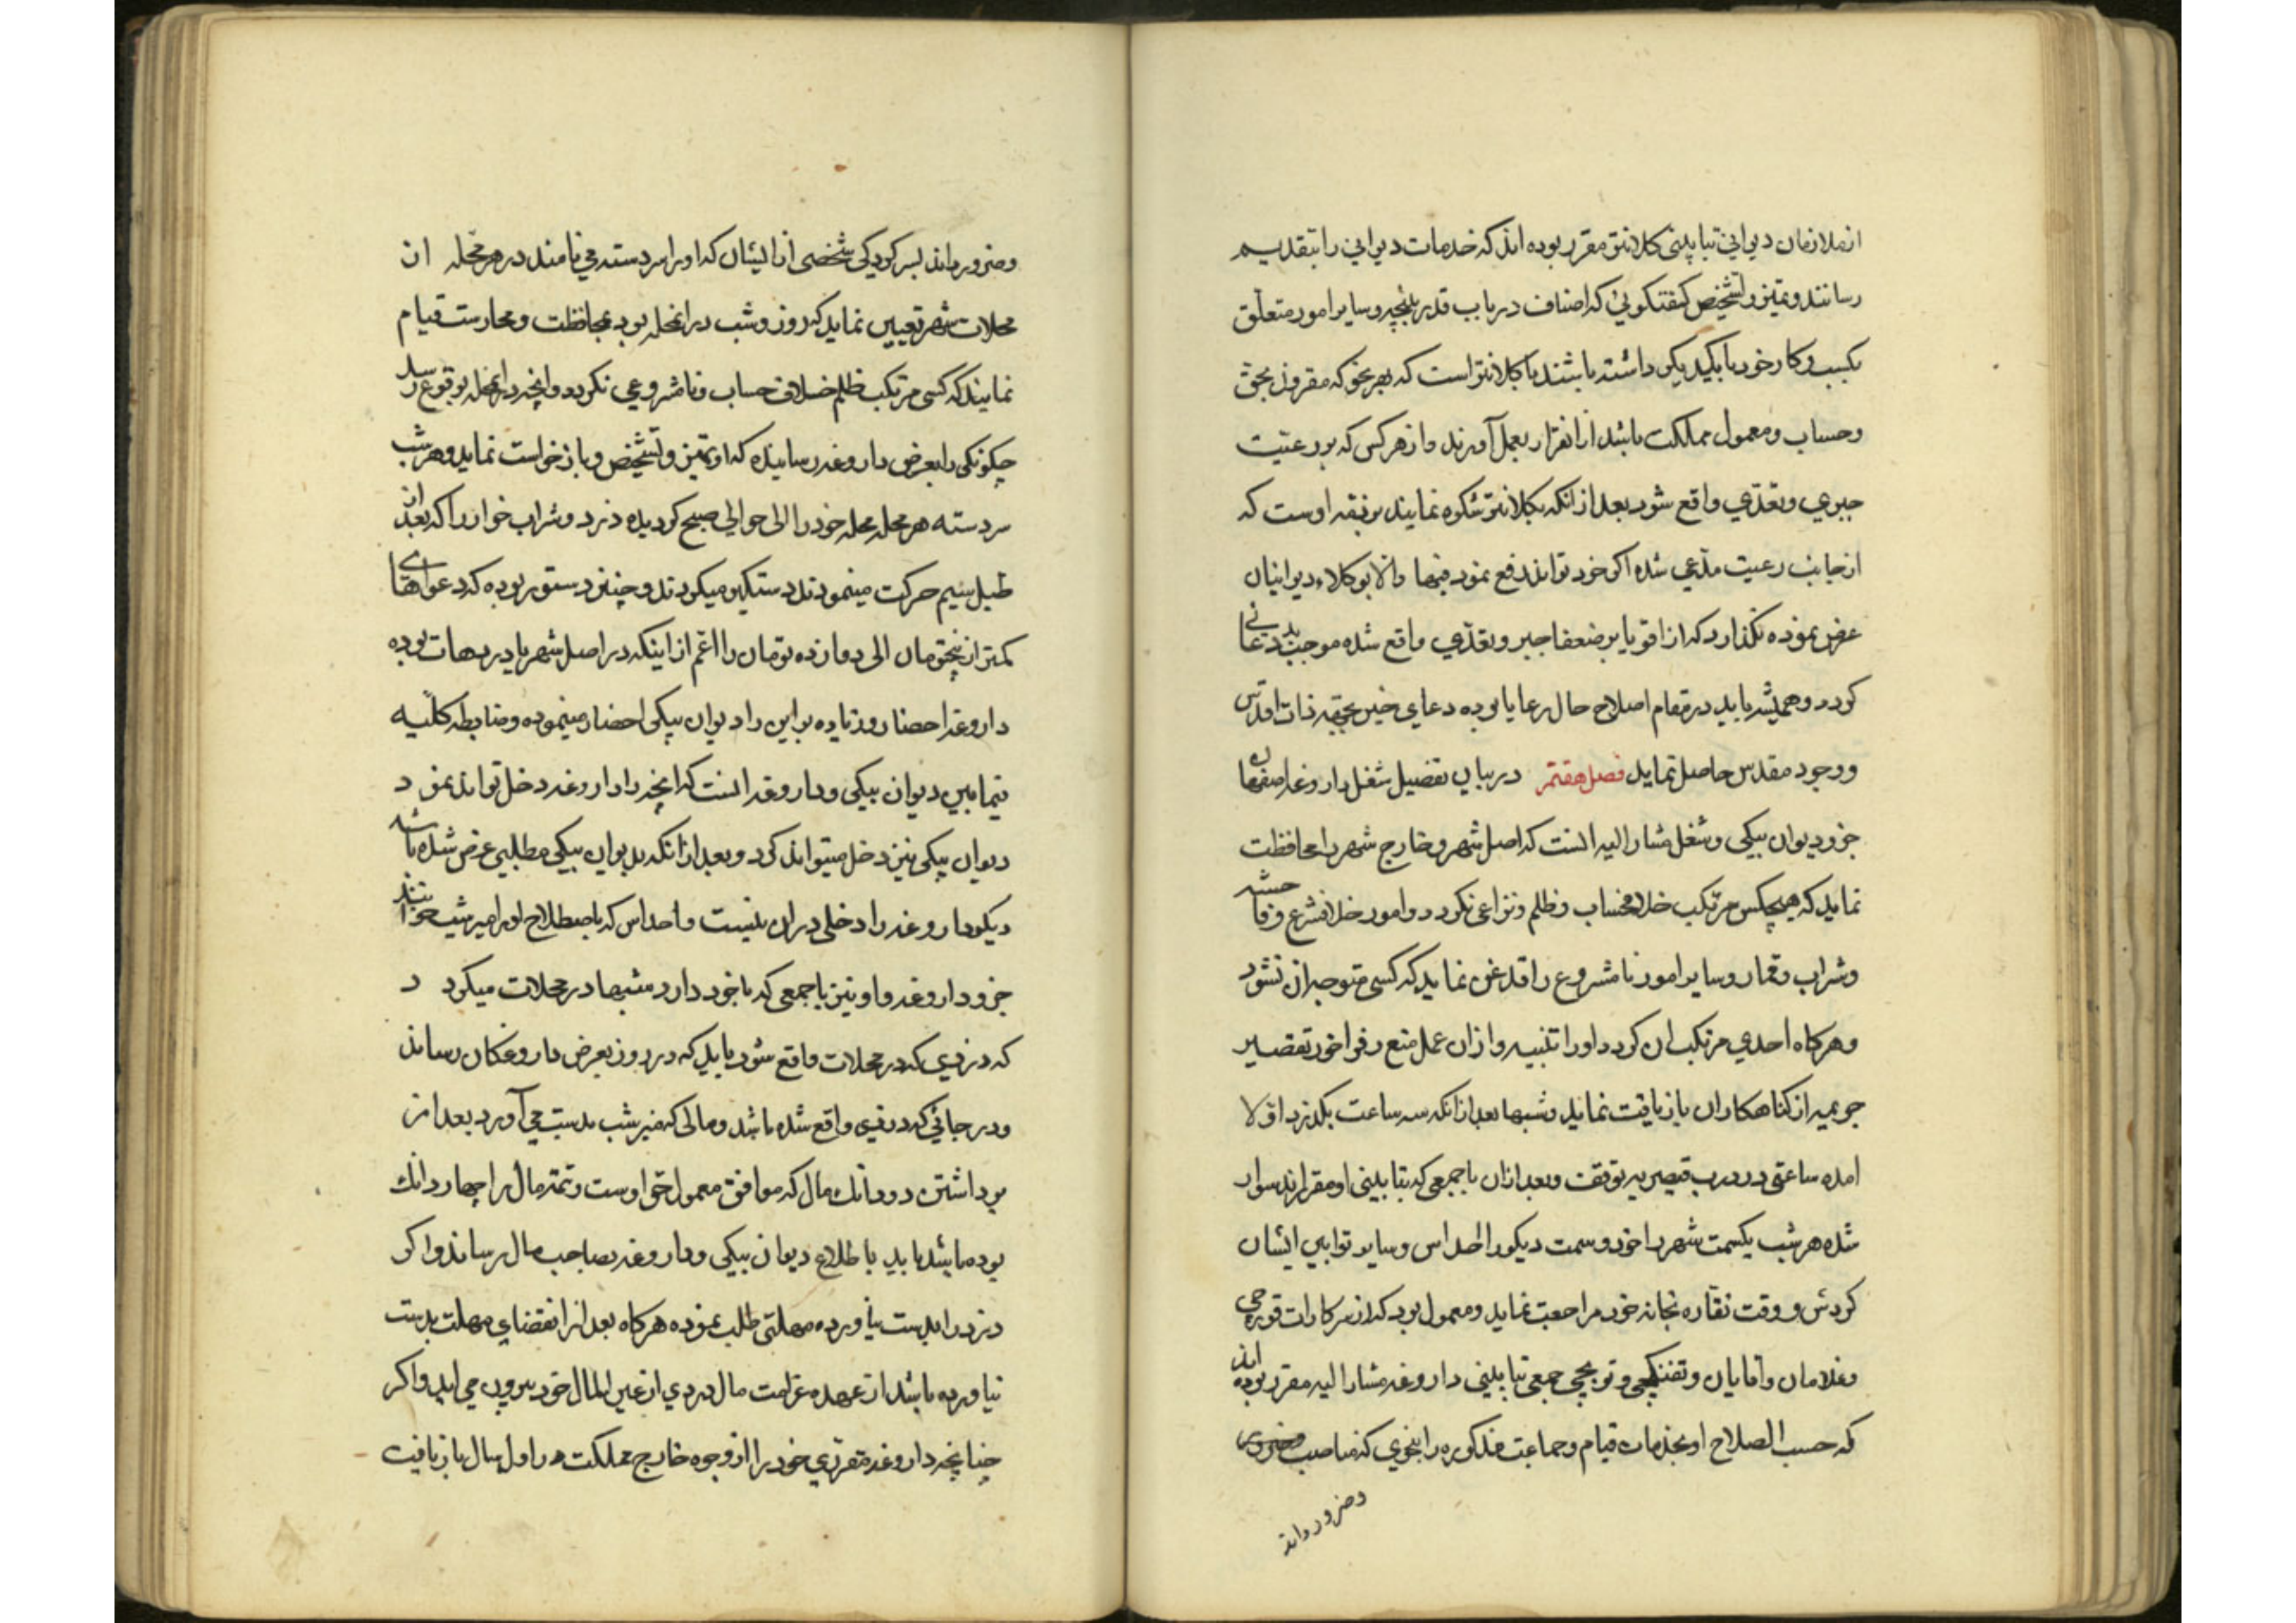 ازملازمان دیوانی بتابینی کلانتر مقرر بوده اند که خدمات دیوانی را بتقدیم
رسانند و تمیز و تشخیص کفتکوئی که اصناف در باب قدر بنیچه و سایر امور متعلق
بکسب و کار خود با یکدیکر داشته باشند با کلانتر است که بهر نحو که مقرون بحق
و حساب و معمول مملکت باشد از انقرار بعمل آورند و از هر کس که بر رعیت
جبری و تعدی واقع شود بعد از انکه بکلانتر شکوه نمایند بر ذمه اوست که
از جانب رعیت مدعی شده اکر خود تواند دفع نمود فبها والا بوکلاء دیوانیان
عرض نموده نکذارد که از اقویا بر ضعفا جبر و تعدی واقع شده موجب بددعائی
کردد و همیشه باید در مقام اصلاح حال رعایا بوده دعای خیر بجهة ذات اقدس
و وجود مقدس حاصل نماید فصل هفتم در بیان تفضیل شغل داروغه اصفهان
جزو دیوان بیکی و شغل مشار الیه انست که اصل شهر و خارج شهر را محافظت
نماید که هیچکس مرتکب خلاف حساب و ظلم و نزاعی نکردد و امور خلاف شرع و فاحشه
و شراب و قمار و سایر امور نامشروع را قدغن نماید که کسی متوجه ان نشود
و هرکاه احدی مرتکب ان کردد اورا تنبیه و از ان عمل منع و فراخور تقصیر
جریمه از کناهکاران بازیافت نماید و شبها بعد از انکه سه ساعت بکذرد اولا
امده ساعتی در درب قیصریه توقف و بعد از ان با جمعی که بتابینی او مقررند سوار
شده هر شب یکسمت شهر را خود و سمت دیکر را احداس و سایر توابین ایشان
کردش و وقت نقاره بخانه خود مراجعت نماید و معمول بود که از سرکارات قورچی
و غلامان و اقایان و تفنکچی و توپچی جمعی بتابینی داروغه مشار الیه مقرر بوده اند
که حسب الصلاح او بخدمات قیام و جماعت مذکوره را بنحوی که مناسب و ضرور
و ضرور داند
و ضرور داند بسرکردیکی شخصی از ایشان که اورا سردسته می نامند در هر محله از
محلات شهر تعیین نماید که روز و شب در انمحله بوده بمحافظت و محارست قیام
نمایند که کسی مرتکب ظلم خلاف حساب و نامشروعی نکردد و انچه در انمحله بوقوع رسد
چکونکی را بعرض داروغه رسانیده که او تمیز و تشخیص و بازخواست نماید و هر شب
سردسته هر محله محله خود را الی حوالی صبح کردیده دزد و شراب خوار را که بعد از
طبل سیم حرکت مینمودند دستکیر میکردند و چنین دستور بوده که دعواهای
کمتر از پنجتومان الی دوازده تومان را اعم از اینکه در اصل شهر یا در دهات بوده
داروغه احضار و زیاده بر این را دیوان بیکی احضار مینموده و ضابطه کلیه
فیمابین دیوان بیکی و داروغه انست که انچه را داروغه دخل تواند نمود
دیوان بیکی نیز دخل میتواند کرد و بعد از انکه بدیوان بیکی مطلبی عرض شده باشد
دیکر داروغه را دخلی در ان نیست و احداس که باصطلاح اورا میرشب خوانند
جزو داروغه و او نیز با جمعی که با خود دارد شبها در محلات میکردد
که دزدی که در محلات واقع شود باید که در روز بعرض داروغکان رساند
و در جائی که دزدی واقع شده باشد و مالی که میر شب بدست می آورد بعد از
برداشتن دودانک مال که موافق معمول حق اوست و تتمه مال را چهاردانک
بوده باشد باید باطلاع دیوان بیکی و داروغه بصاحب مال رساند و اکر
دزد را بدست نیاورده مهلتی طلب نموده هرکاه بعد از انقضای مهلت بدست
نیاورده باشد از عهده غرامت مال دزدی از عین المال خود بیرون می اید و اکر
چنانچه داروغه مقرری خود را از وجوه خارج مملکت در اول سال بازیافت